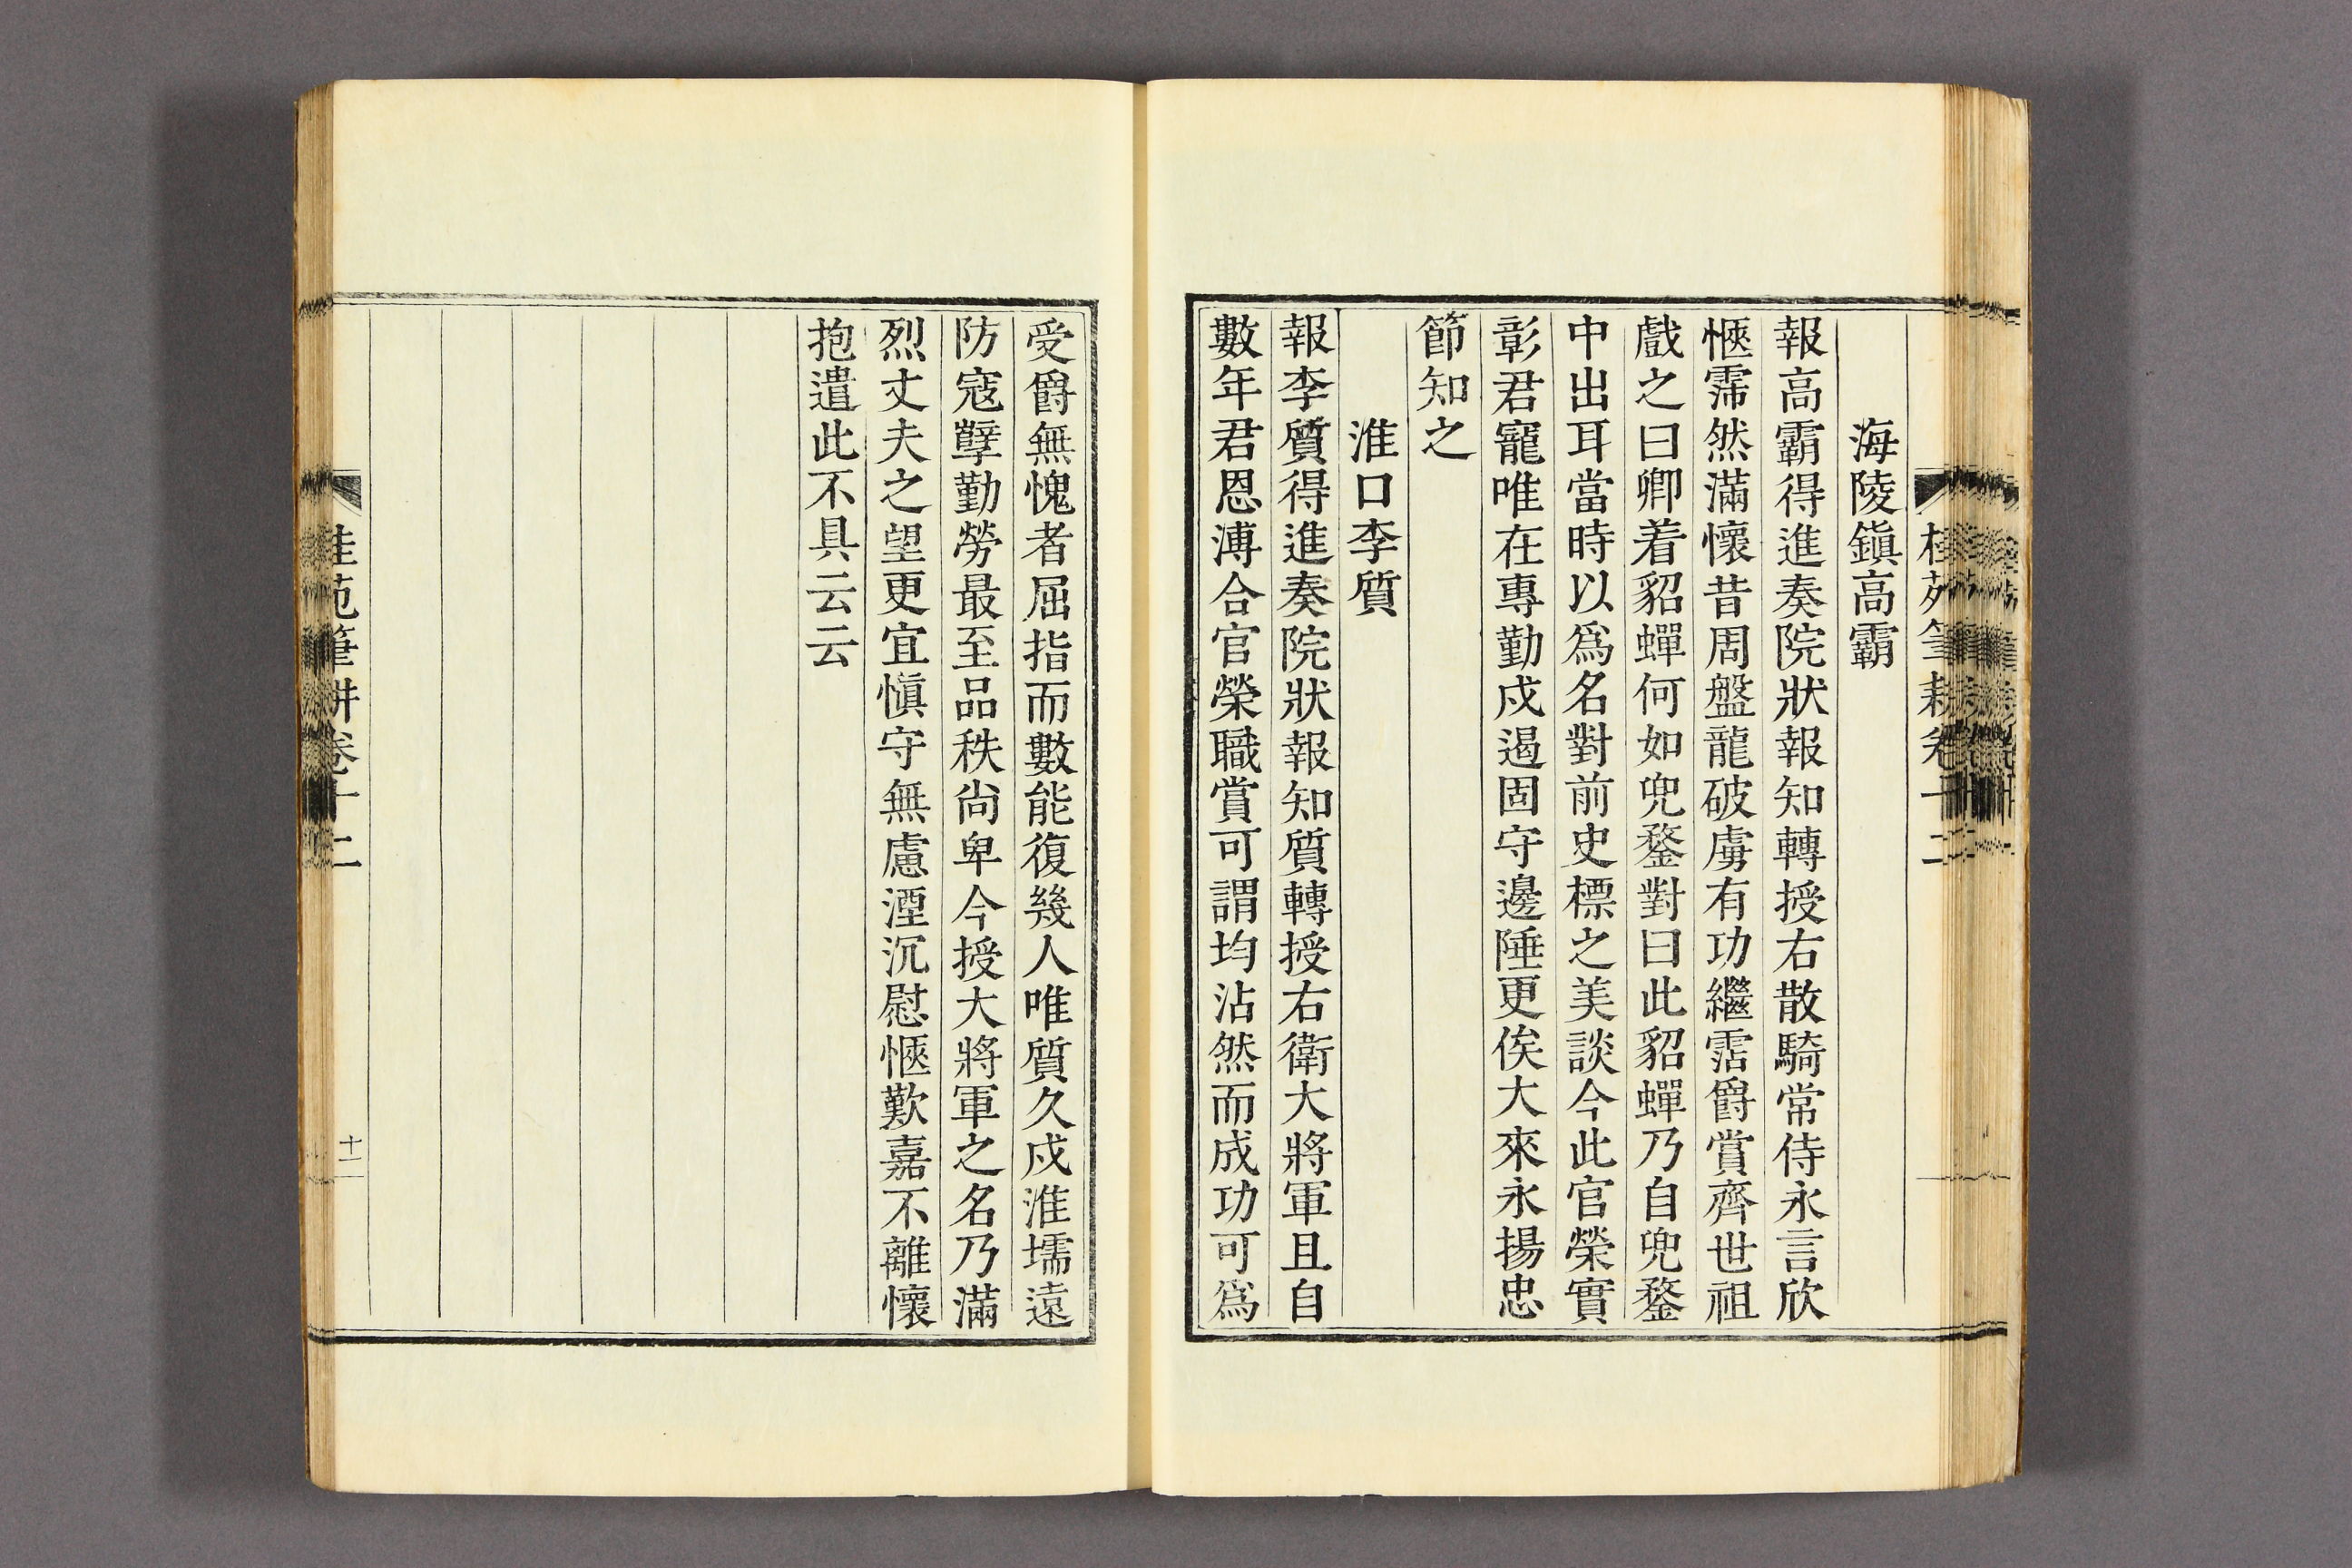 桂苑筆耕卷十二
海陵鎭高霸
報高霸得進奏院狀報知轉授右散騎常侍永言欣
愜霈然滿懷昔周盤龍破虜有功繼霑爵賞齊世祖
戲之曰卿着貂蟬何如兜鍪對曰此貂蟬乃自兜鍪
中出耳當時以爲名對前史標之美談今此官榮實
彰君寵唯在專勤戍遏固守邊陲更俟大來永揚忠
節知之
淮口李質
報李質得進奏院狀報知質轉授右衛大將軍且自
數年君恩溥合官榮職賞可謂均沾然而成功可爲
受爵無愧者屈指而數能復幾人唯質久戍淮壖遠
防寇孼勤勞最至品秩尙卑今授大將軍之名乃滿
烈丈夫之望更宜愼守無慮湮沉慰愜歎嘉不離懷
抱遣此不具云云
桂苑筆耕卷十二
十一